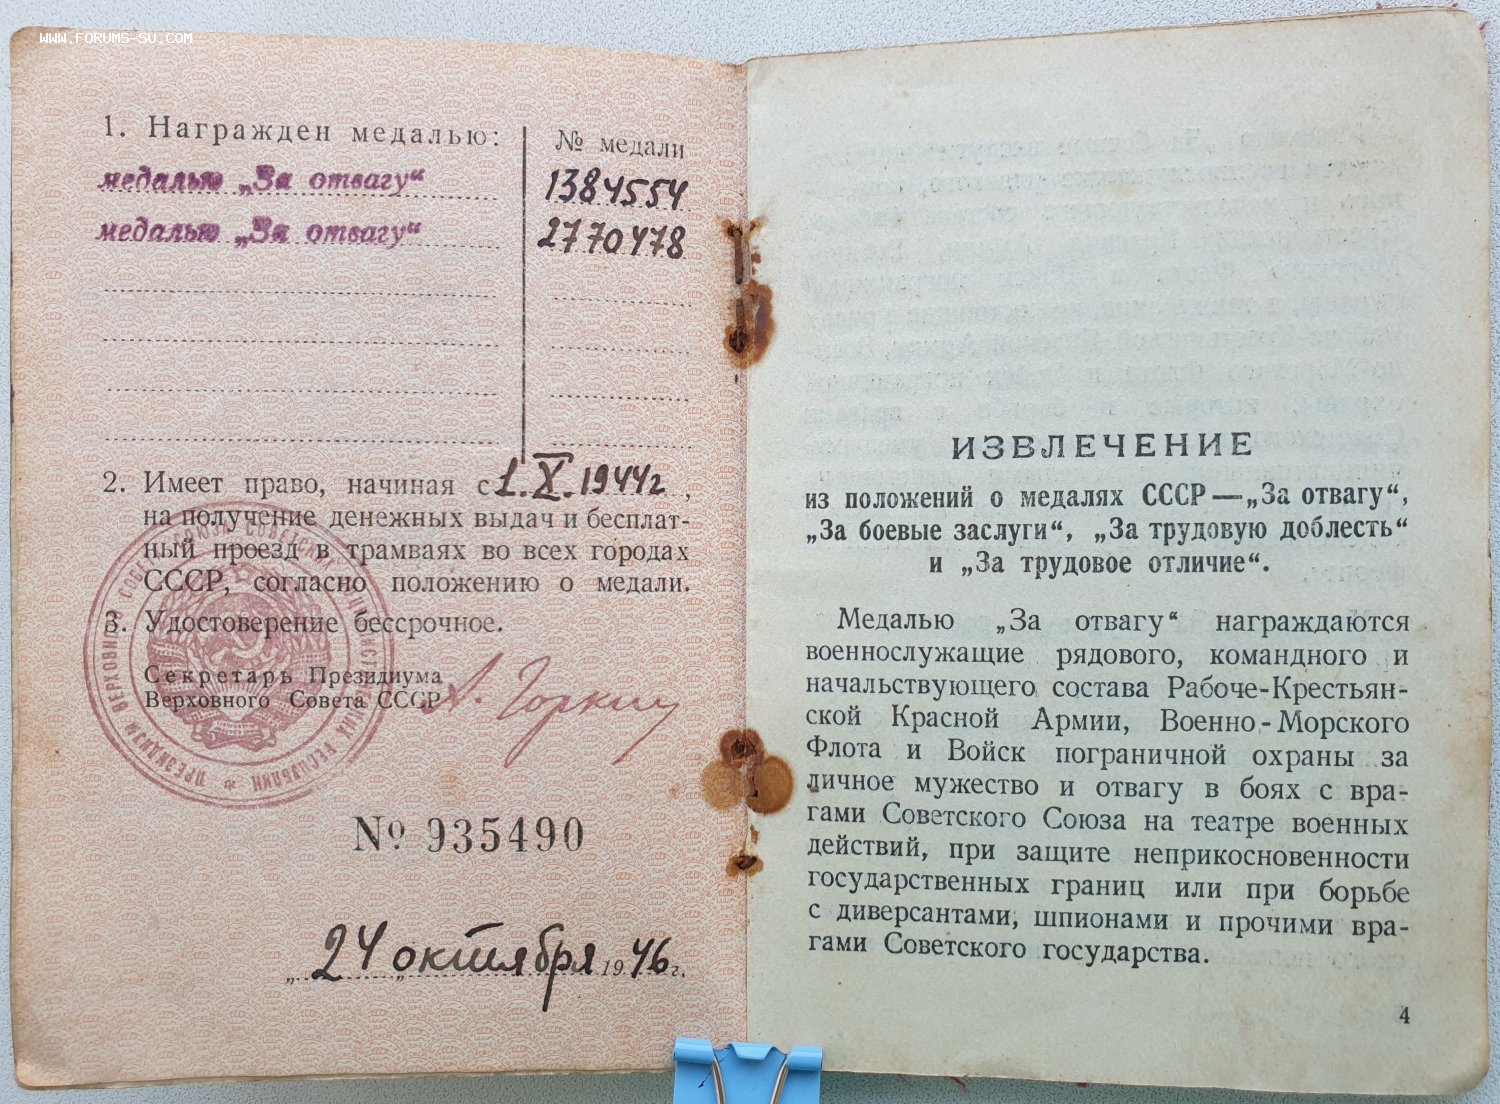 WWW.FORUMS-SU.COM
1. Награжден медалью:
№ медали
медалью „За отвагу“
1384554
медалью „За отвагу“
2770478
2. Имеет право, начиная с 1.X.1944г,
на получение денежных выдач и бесплат-
ный проезд в трамваях во всех городах
СССР, согласно положению о медали.
3. Удостоверение бессрочное.
Секретарь Президиума
Верховного Совета СССР
А. Горкин
№ 935490
„24„ октября 1946г.
ИЗВЛЕЧЕНИЕ
из положений о медалях СССР—„За отвагу“,
„За боевые заслуги“, „За трудовую доблесть“
и „За трудовое отличие“.
Медалью „За отвагу“ награждаются
военнослужащие рядового, командного и
начальствующего состава Рабоче-Крестьян-
ской Красной Армии, Военно-Морского
Флота и Войск пограничной охраны за
личное мужество и отвагу в боях с вра-
гами Советского Союза на театре военных
действий, при защите неприкосновенности
государственных границ или при борьбе
с диверсантами, шпионами и прочими вра-
гами Советского государства.
4